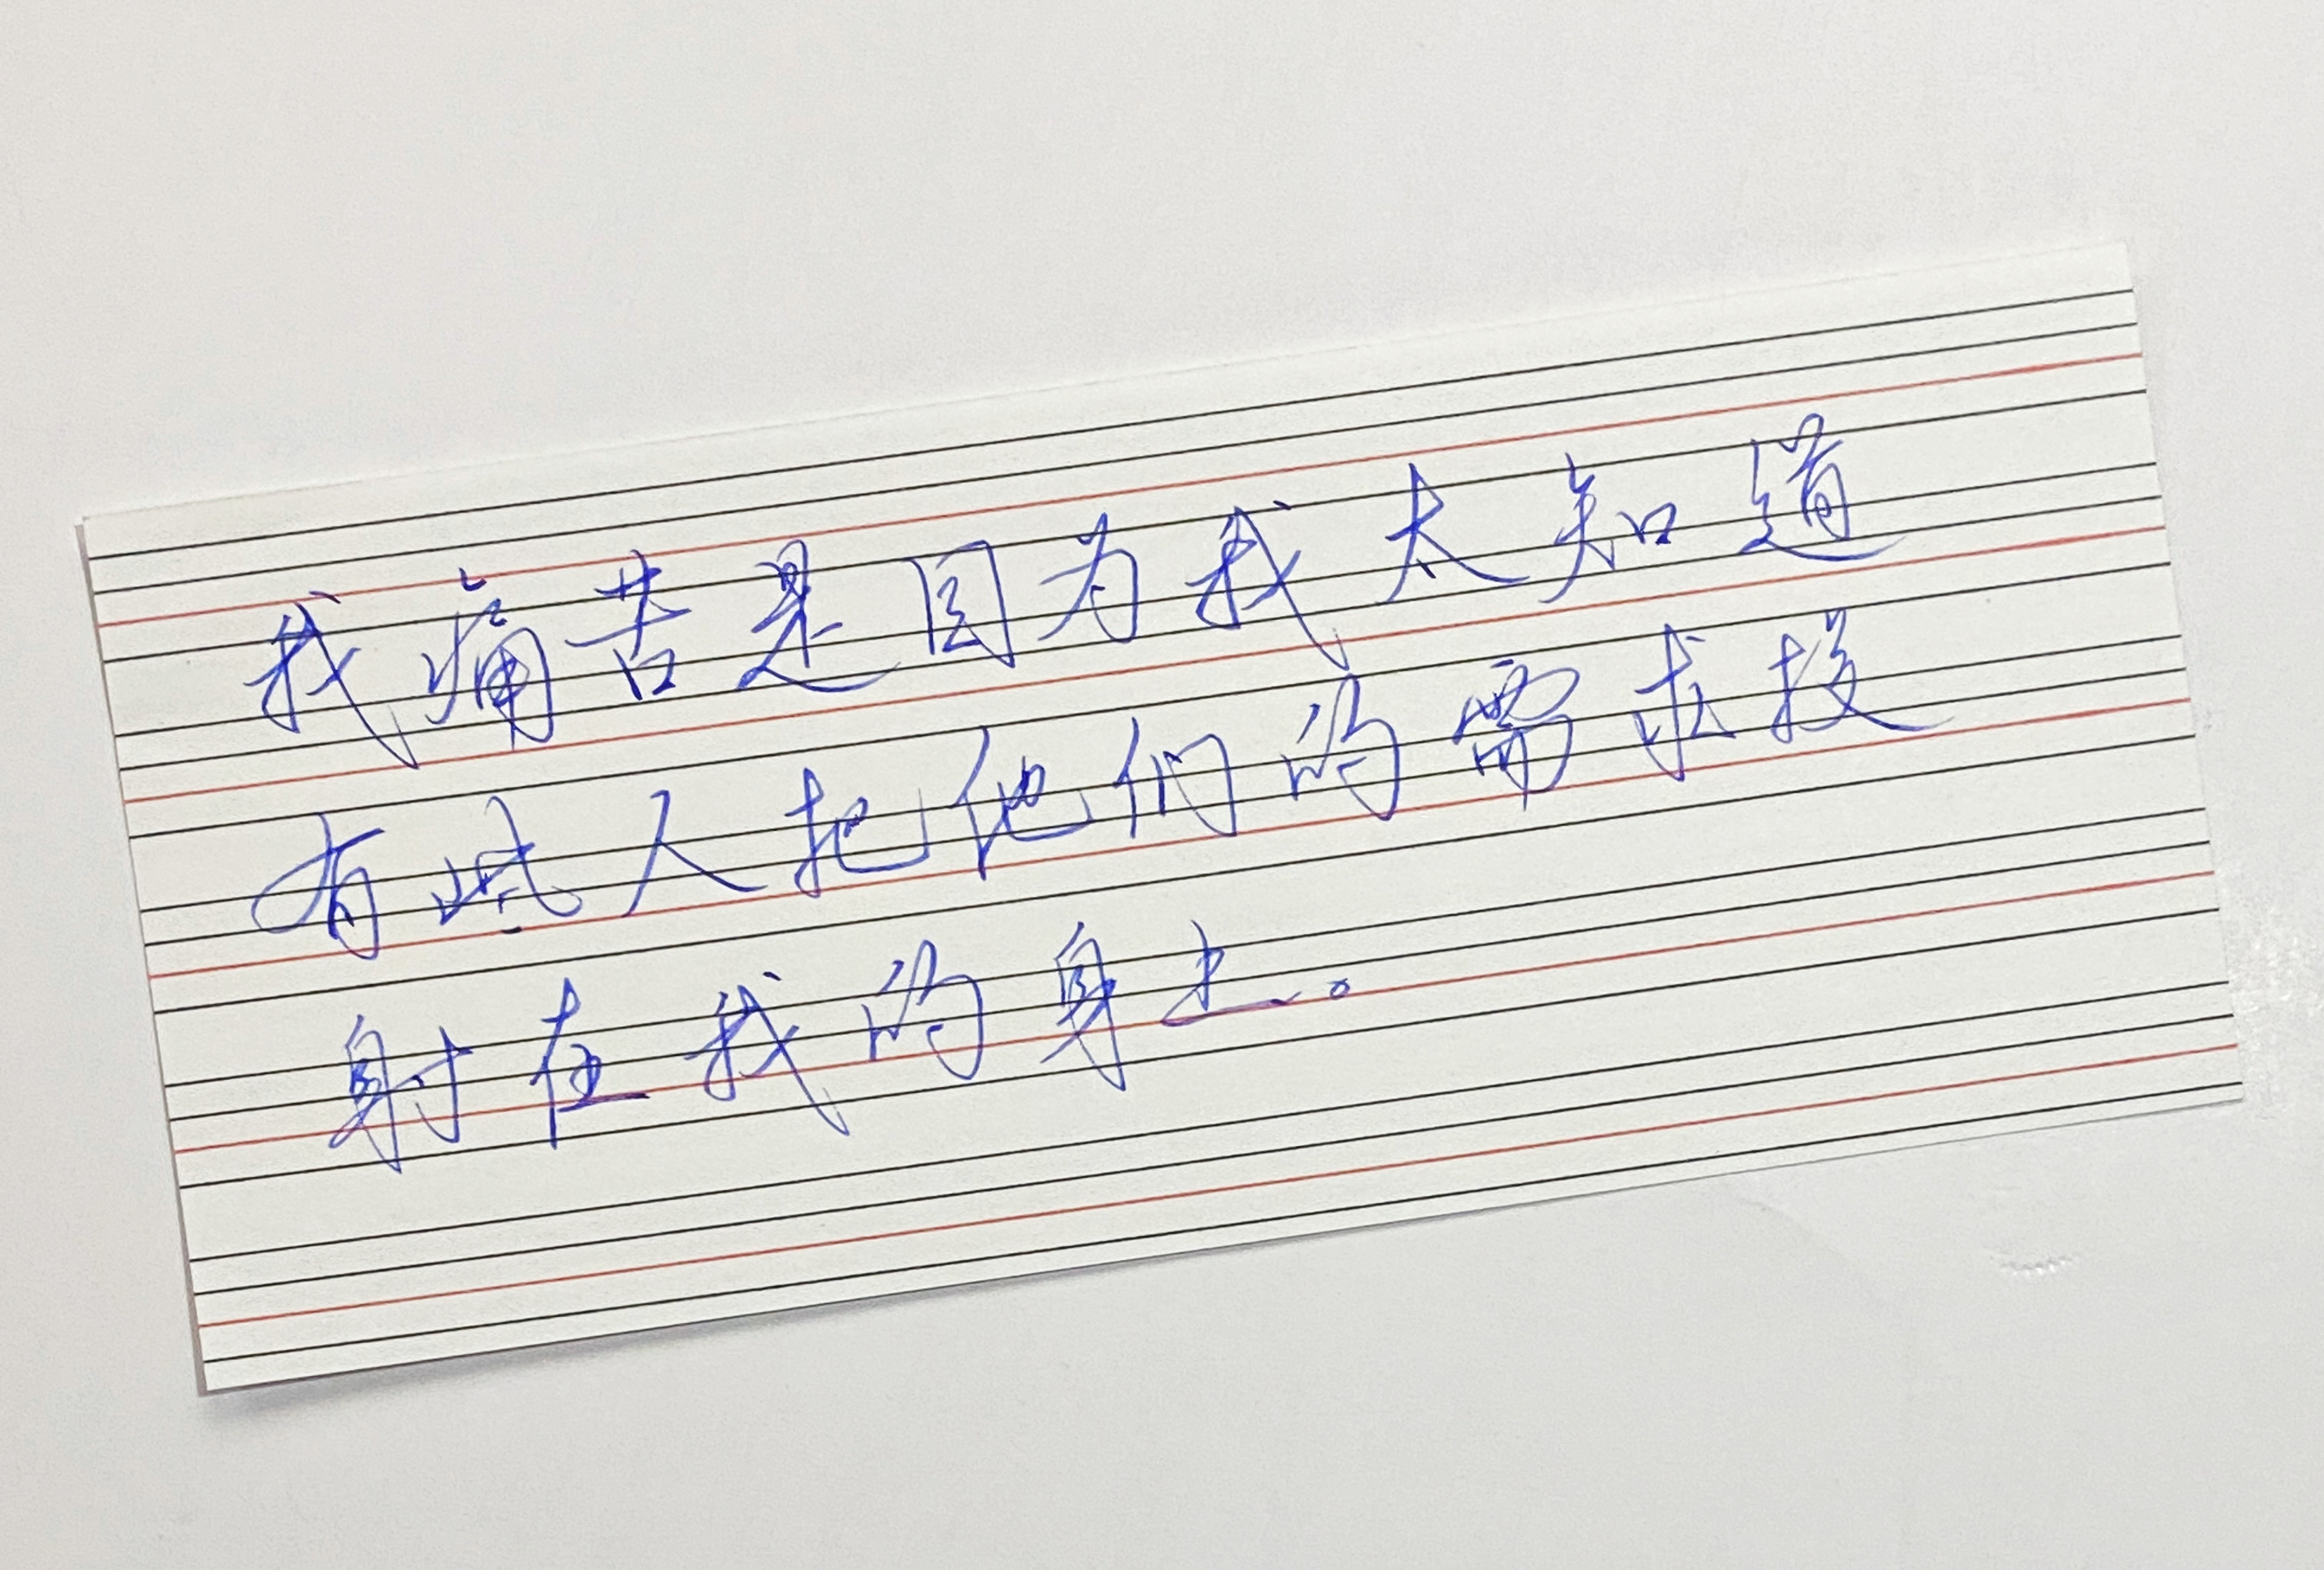 我痛苦是因为我太知道
有些人把他们的需求投
射在我的身上。